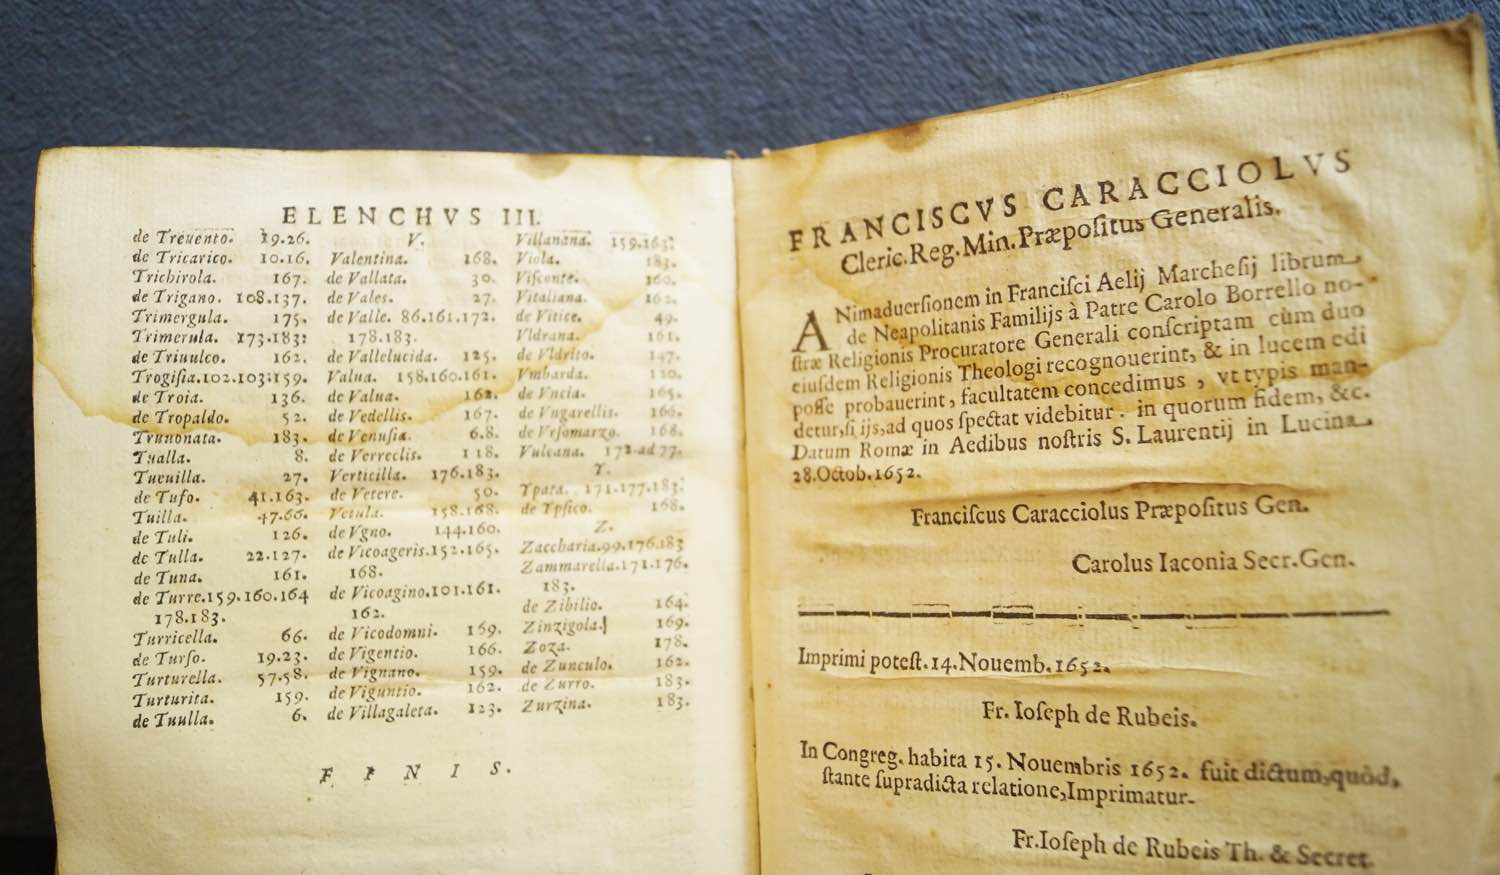 ELENCHVS III.
de Treuento. 19.26.
de Tricarico. 10.16.
Trichirola. 167.
de Trigano. 108.137.
Trimergula. 175.
Trimerula. 173.183:
de Triuulco. 162.
Trogisia.102.103:159.
de Troia. 136.
de Tropaldo. 52.
Trunonata. 183.
Tualla. 8.
Tueuilla. 27.
de Tufo. 41.163.
Tuilla. 47.66.
de Tuli. 126.
de Tulla. 22.127.
de Tuna. 161.
de Turre.159.160.164
178.183.
Turricella. 66.
de Turſo. 19.23.
Turturella. 57.58.
Turturita. 159.
de Tuulla. 6.
V.
Valentina. 168.
de Vallata. 30.
de Vales. 27.
de Valle. 86.161.172.
178.183.
de Vallelucida. 125.
Valua. 158.160.161.
de Valua. 162.
de Vedellis. 167.
de Venuſia. 6.8.
de Verreclis. 118.
Verticilla. 176.183.
de Vetere. 50.
Vetula. 158.168.
de Vgno. 144.160.
de Vicoageris.152.165.
168.
de Vicoagino.101.161.
162.
de Vicodomni. 169.
de Vigentio. 166.
de Vignano. 159.
de Viguntio. 162.
de Villagaleta. 123.
Villanana. 159.163:
Viola. 183.
Viſconte. 160.
Vitaliana. 162.
de Vitice. 49.
Vldrana. 161.
de Vldrito. 147.
Vmbarda. 120.
de Vncia. 165.
de Vngarellis. 166.
de Vrſomarzo. 168.
Vulcana. 172.ad 77.
Y.
Ypata. 171.177.183:
de Ypſico. 168.
Z.
Zaccharia.99.176.183
Zammarella.171.176.
183.
de Zibilio. 164.
Zinzigola. 169.
Zoza. 178.
de Zunculo. 162.
de Zurro. 183.
Zurzina. 183.
FINIS.
FRANCISCVS CARACCIOLVS
Cleric.Reg.Min.Præpoſitus Generalis.
ANimaduerſionem in Franciſci Aelij Marcheſij librum
de Neapolitanis Familijs à Patre Carolo Borrello no-
ſtræ Religionis Procuratore Generali conſcriptam cùm duo
eiuſdem Religionis Theologi recognouerint, & in lucem edi
poſſe probauerint, facultatem concedimus, vt typis man-
detur,ſi ijs,ad quos ſpectat videbitur. in quorum fidem, &c.
Datum Romæ in Aedibus noſtris S. Laurentij in Lucina
28.Octob.1652.
Franciſcus Caracciolus Præpoſitus Gen.
Carolus Iaconia Secr.Gen.
Imprimi poteſt.14.Nouemb.1652.
Fr. Ioſeph de Rubeis.
In Congreg. habita 15. Nouembris 1652. fuit dictum,quòd,
ſtante ſupradicta relatione,Imprimatur.
Fr.Ioſeph de Rubeis Th. & Secret.